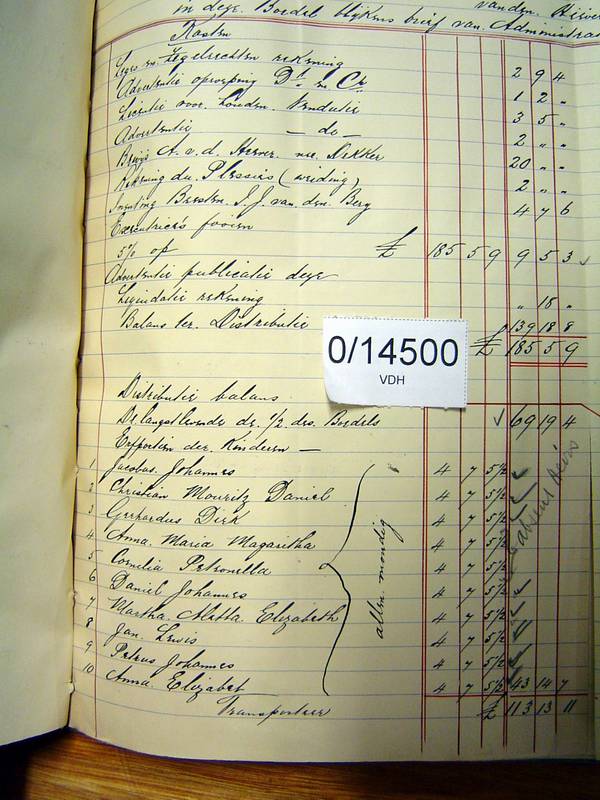 in deze Boedel Wykens brief van Administrat
Kosten
Leges en Zegelrechten rekening 2 9 4
Advertentie oproeping Dt. en Cr. 1 2 "
Licentie voor houden Vendutie 3 5 "
Advertentie — do — 2 " "
Bewijs A. v. d. Heever nee Dekker 20 " "
Rekening du Plessis (weiding) 2 " "
Inenting Beesten S. J. van den Berg 4 7 6
Executrice's fooien
5% op £ 185 5 9 9 5 3
Advertentie publicatie deze
Liquidatie rekening " 15 "
Balans ter Distributie 139 18 8
£ 185 5 9
0/14500
VDH
Distributie balans
De langstlevende de 1/2 des Boedels 69 19 4
Erfportien der Kinderen —
1 Jacobus Johannes 4 7 5½
2 Christian Mouritz Daniel 4 7 5½
3 Gerhardus Dirk 4 7 5½
4 Anna Maria Magaritha 4 7 5½
5 Cornelia Petronella 4 7 5½
6 Daniel Johannes 4 7 5½
7 Martha Aletta Elizabeth 4 7 5½
8 Jan Lewis 4 7 5½
9 Petrus Johannes 4 7 5½
10 Anna Elizabet 4 7 5½ 43 14 7
allen mondig
Transporteer £ 113 13 11